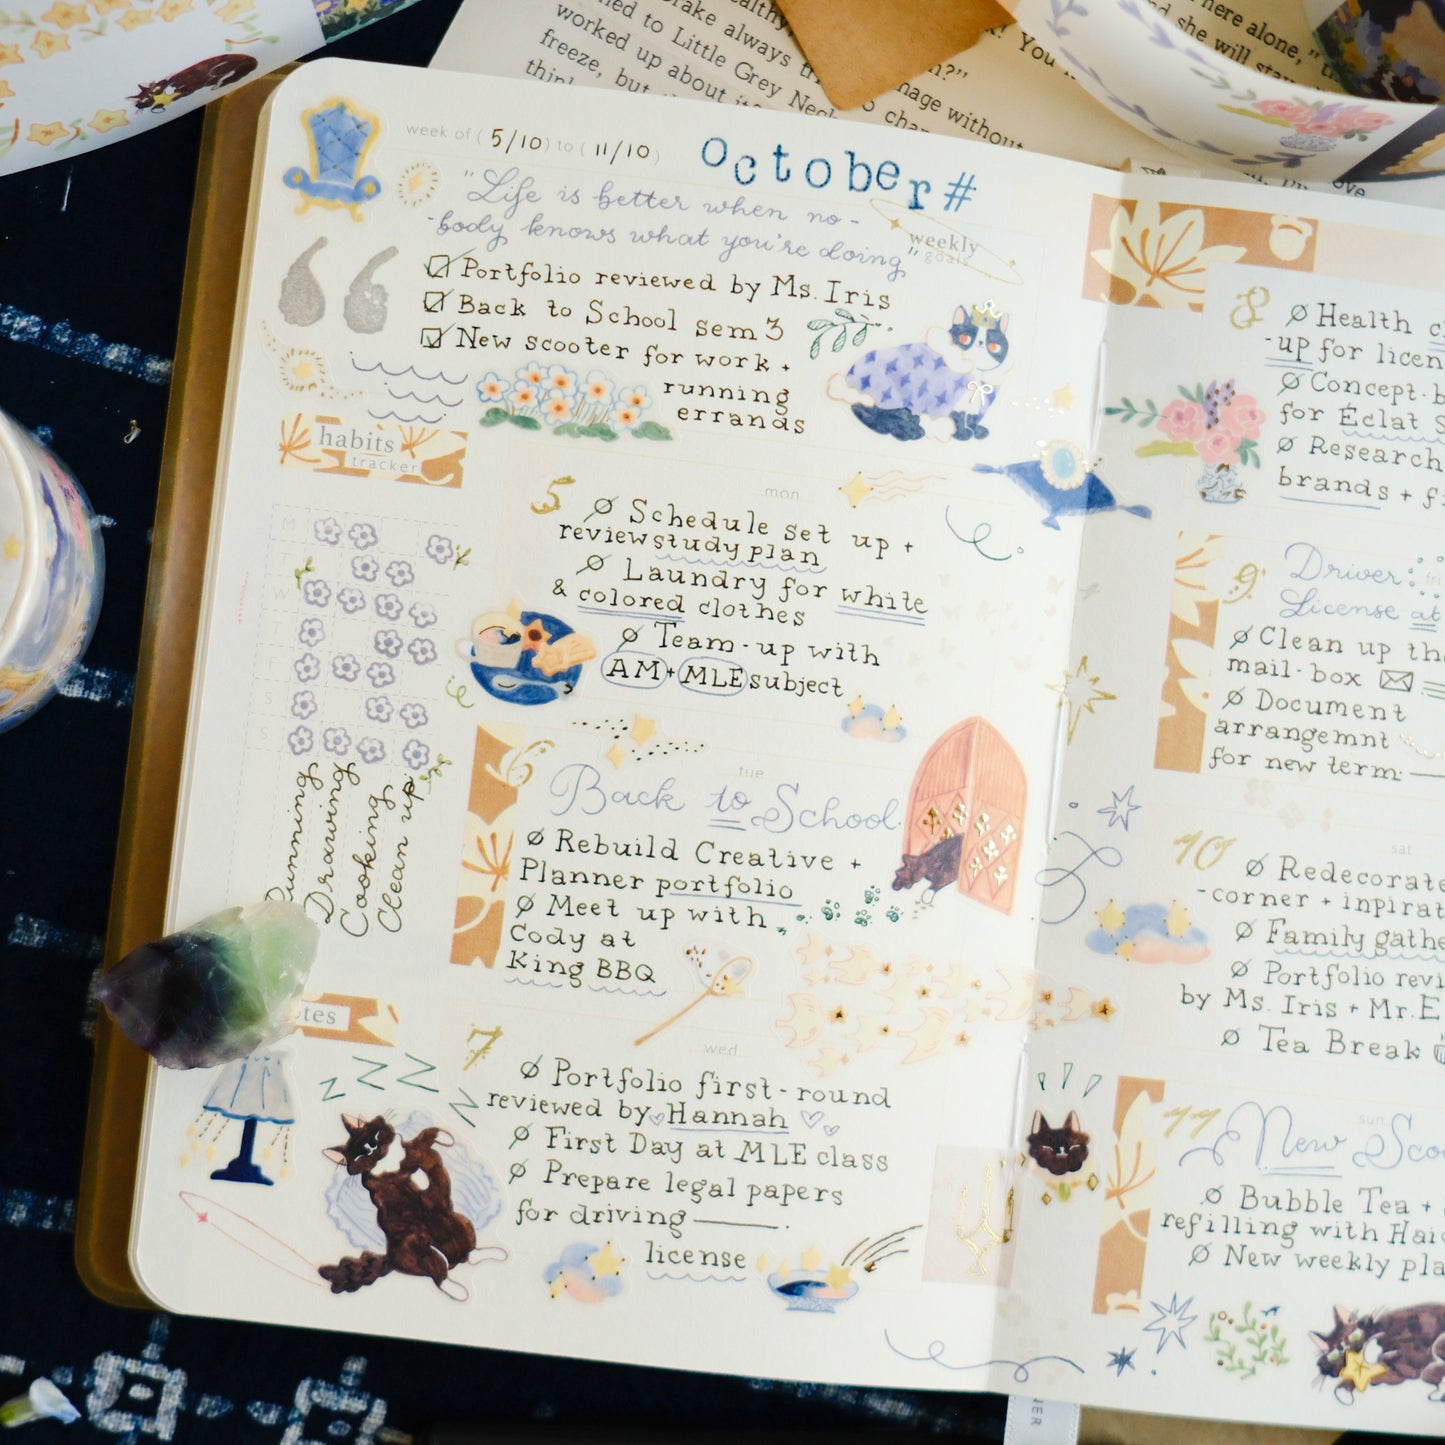 week of ( 5/10 ) to ( 11/10 )
october#
"Life is better when no-
-body knows what you're doing"
weekly
goals
Portfolio reviewed by Ms. Iris
Back to School sem 3
New scooter for work +
running
errands
habits
tracker
M
T
W
T
F
S
S
Running
Drawing
Cooking
Clean up
mon
5
Schedule set up +
review study plan
Laundry for white
& colored clothes
Team-up with
AM + MLE subject
tue
6
Back to School
Rebuild Creative +
Planner portfolio
Meet up with
Cody at
King BBQ
wed
7
Portfolio first-round
reviewed by Hannah
First Day at MLE class
Prepare legal papers
for driving
license
zzzz
8
Health
-up for licen
Concept
for Éclat S
Research
brands + f
fri
9
Driver
License at
Clean up th
mail-box
Document
arrangemnt
for new term:
sat
10
Redecorate
-corner + inpirat
Family gathe
Portfolio revi
by Ms. Iris + Mr. E
Tea Break
sun
11
New Scoo
Bubble Tea +
refilling with Hai
New weekly pla
Drake always
to Little Grey Neck
worked up about
freeze, but
here alone,"
and she will stay
nage without
You